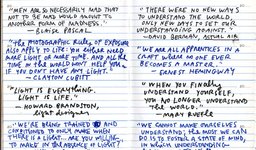 "MEN ARE SO NECESSARILY MAD THAT
NOT TO BE MAD WOULD AMOUNT TO
ANOTHER FORM OF MADNESS."
— BLAISE PASCAL
"THE PHOTOGRAPHIC RULES OF EXPOSURE
ALSO APPLY TO LIFE: YOU EITHER NEED
MORE LIGHT OR MORE TIME. AND ALL THE
TIME IN THE WORLD WON'T HELP YOU
IF YOU DON'T HAVE ANY LIGHT."
— CLAYTON CUBITT
"LIGHT IS EVERYTHING.
LIGHT IS LIFE."
— HOWARD BRANDSTON,
light designer
"WE'RE BEING TRAINED
CONDITIONS TO ONLY MAKE WHEN
THERE IS A LIGHT ARE YOU WILLING
TO MAKE IN THE ABSENCE OF LIGHT?
"THERE WERE NO NEW WAYS
TO UNDERSTAND THE WORLD,
ONLY NEW DAYS TO SET OUR
UNDERSTANDING AGAINST."
— DAVID BERMAN, ACTUAL AIR
"WE ARE ALL APPRENTICES IN A
CRAFT WHERE NO ONE EVER
BECOMES A MASTER."
— ERNEST HEMINGWAY
"WHEN YOU FINALLY
UNDERSTAND YOURSELF,
YOU NO LONGER UNDERSTAND
THE WORLD."
— MARY RUEFLE
"WE CANNOT MAKE OURSELVES
UNDERSTAND; THE MOST WE CAN
DO IS TO FOSTER A STATE OF MIND,
IN WHICH UNDERSTANDING